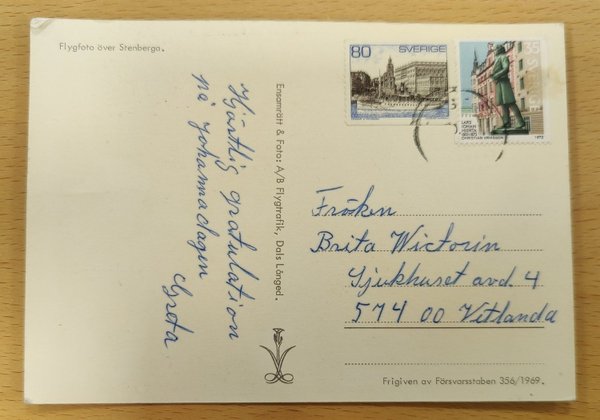 Flygfoto över Stenberga.
Hjärtlig gratulation
på Johannadagen
Greta
Ensamrätt & Foto: A/B Flygtrafik, Dals Långed.
80 SVERIGE
35
SVERIGE
LARS
JOHAN
HIERTA
1801-1872
CHRISTIAN ERIKSSON
1972
Fröken
Brita Wictorin
Sjukhuset avd. 4
574 00 Vetlanda
Frigiven av Försvarsstaben 356/1969.